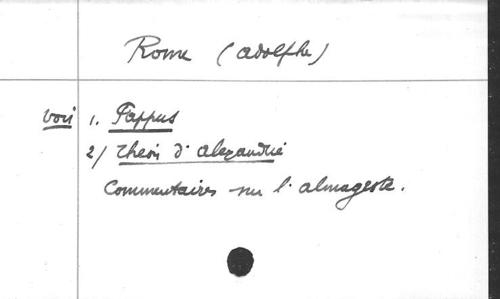 Rome (Adolphe)
voir 1. Pappus
2/ Théon d'Alexandrie
Commentaires sur l'Almageste.